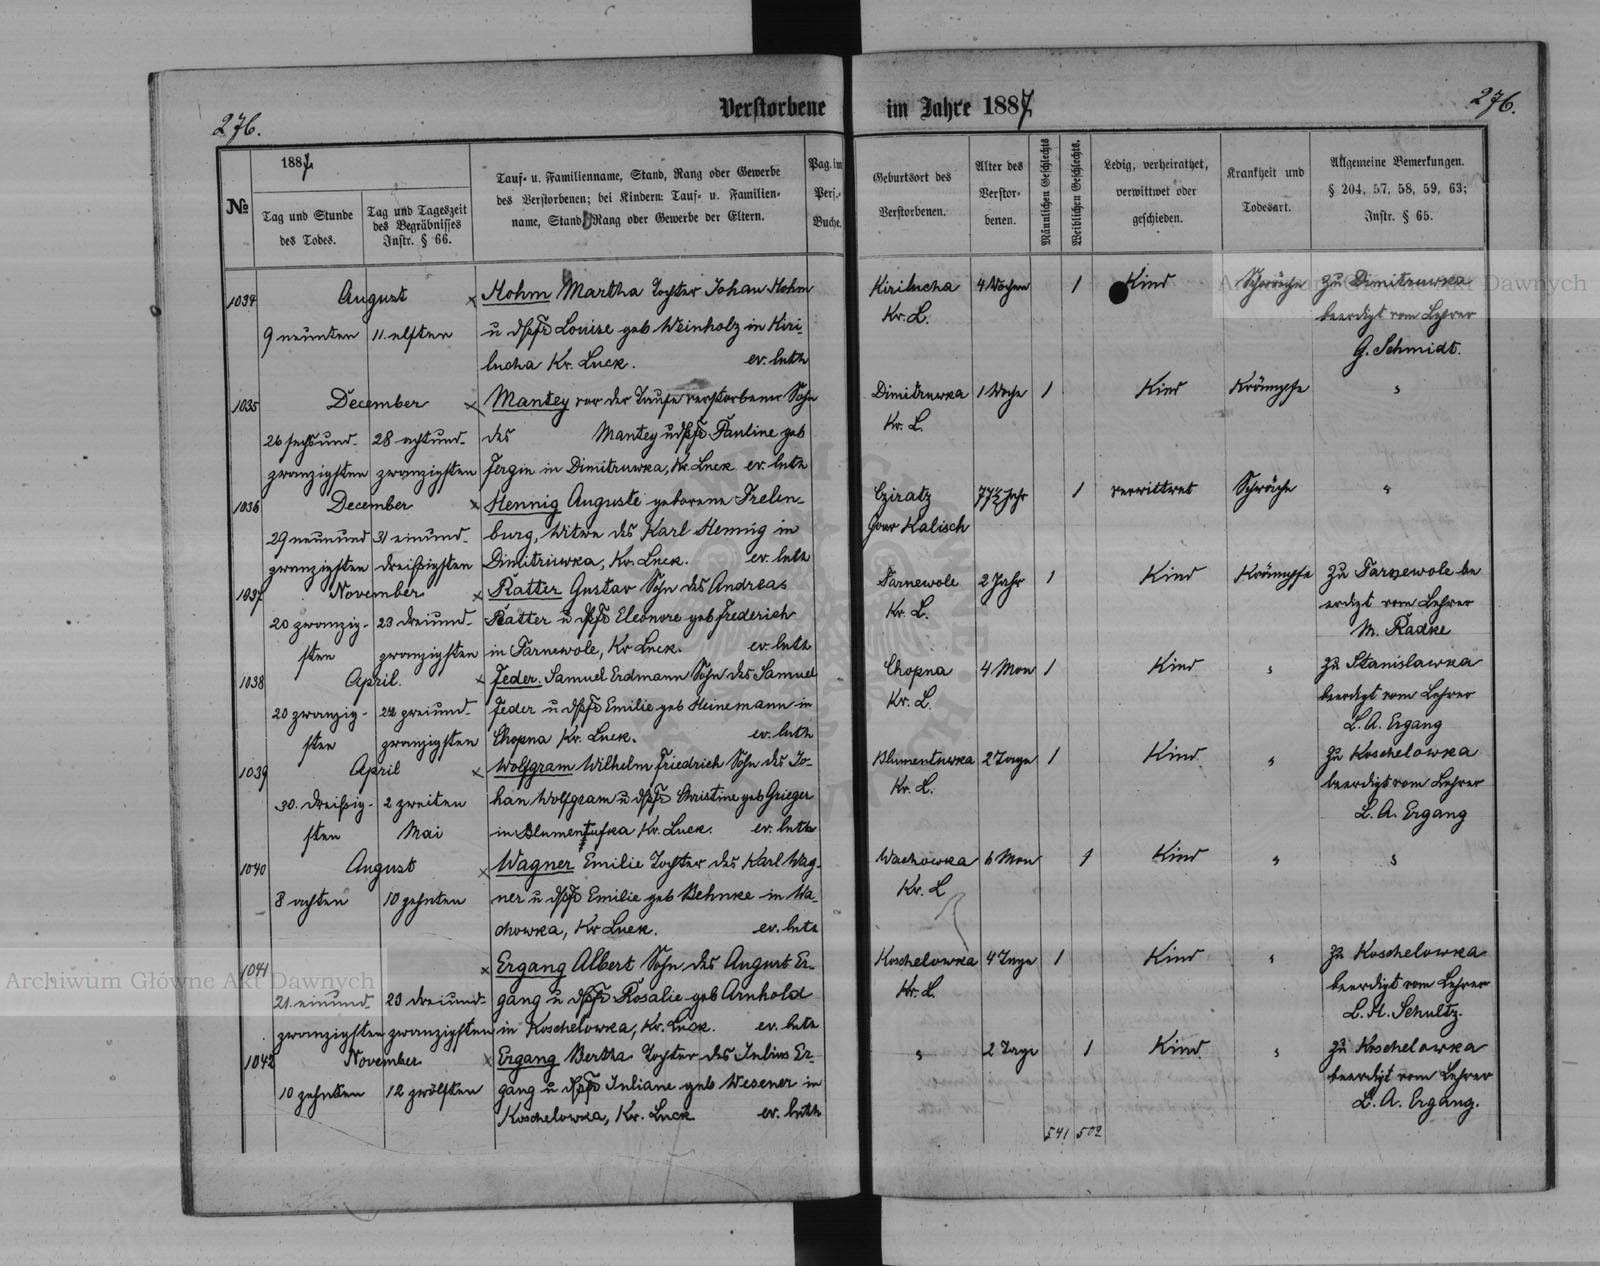 276.
Verstorbene im Jahre 1887
276.
№
1887
Tag und Stunde
des Todes.
Tag und Tageszeit
des Begräbnisses
Instr. § 66.
Tauf- u. Familienname, Stand, Rang oder Gewerbe
des Verstorbenen; bei Kindern: Tauf- u. Familien-
name, Stand, Rang oder Gewerbe der Eltern.
Pag. im
Pers.-
Buche.
Geburtsort des
Verstorbenen.
Alter des
Verstor-
benen.
Männlichen Geschlechts
Weiblichen Geschlechts.
Ledig, verheirathet,
verwittwet oder
geschieden.
Krankheit und
Todesart.
Allgemeine Bemerkungen.
§ 204, 57, 58, 59, 63;
Instr. § 65.
1034
August
9 neunten
11. elften
x Hohm Martha Tochter Johan Hohm
u dssFr Louise geb Weinholz in Kiri-
lucha Kr. Luck. ev. luth
Kirilucha
Kr. L.
4 Wochen
1
Kind
Schwäche
zu Dimitruwka
beerdigt vom Lehrer
G. Schmidt.
1035
December
26 sechsund-
zwanzigsten
28 achtund-
zwanzigsten
x Mantey vor der Taufe verstorbener Sohn
des Mantey u dssFr Pauline geb
Jergin in Dimitruwka, Kr. Luck ev. luth
Dimitruwka
Kr. L.
1 Woche
1
Kind
Krämpfe
"
1036
December
29 neunund
zwanzigsten
31 einund-
dreißigsten
x Hennig Auguste geborene Frelen-
burg, Witwe des Karl Hennig in
Dimitriuwka, Kr. Luck. ev. luth
Cziratz
Gouv Kalisch
77½ Jahr
1
verwittwet
Schwäche
"
1037
November
20 zwanzig-
sten
23 dreiund-
zwanzigsten
x Ratter Gustav Sohn des Andreas
Ratter u dssFr Eleonore geb Frederich
in Tarnewole, Kr Luck. ev. luth
Tarnewole
Kr. L.
2 Jahr
1
Kind
Krämpfe
zu Tarnewole be
erdigt vom Lehrer
M. Radke
1038
April.
20 zwanzig-
sten
22 zweiund-
zwanzigsten
x Jeder. Samuel Erdmann Sohn des Samuel
Jeder u dssFr Emilie geb Heinemann in
Chopna Kr. Luck. ev. luth
Chopna
Kr. L.
4 Mon
1
Kind
"
zu Stanislawka
beerdigt vom Lehrer
L. A. Ergang
1039
April
30. dreißig-
sten
2 zweiten
Mai
x Wolfgram Wilhelm Friedrich Sohn des Jo-
han Wolfgram u dssFr Christine geb Grieger
in Blumentufka Kr. Luck. ev. luth
Blumentuwka
Kr. L.
2 Tage
1
Kind
"
zu Koschelowka
beerdigt vom Lehrer
L. A. Ergang
1040
August
8 achten
10 zehnten
x Wagner Emilie Tochter des Karl Wag-
ner u dssFr Emilie geb Behnke in Wa-
chowka, Kr Luck. ev. luth
Wachowka
Kr. L
6 Mon
1
Kind
"
"
1041
21. einund-
zwanzigsten
23 dreiund-
zwanzigsten
x Ergang Albert Sohn des August Er-
gang u dssFr Rosalie geb Arnhold
in Koschelowka, Kr. Luck. ev. luth
Koschelowka
Kr. L.
4 Tage
1
Kind
"
zu Koschelowka
beerdigt vom Lehrer
L. H. Schultz.
1042
November
10 zehnten
12 zwölften
x Ergang Bertha Tochter des Julius Er-
gang u dssFr Juliane geb Wesener in
Koschelowka, Kr. Luck ev. luth
"
2 Tage
1
Kind
"
zu Koschelowka
beerdigt vom Lehrer
L. A. Ergang.
541 502
Archiwum Główne Akt Dawnych
Archiwum Główne Akt Dawnych